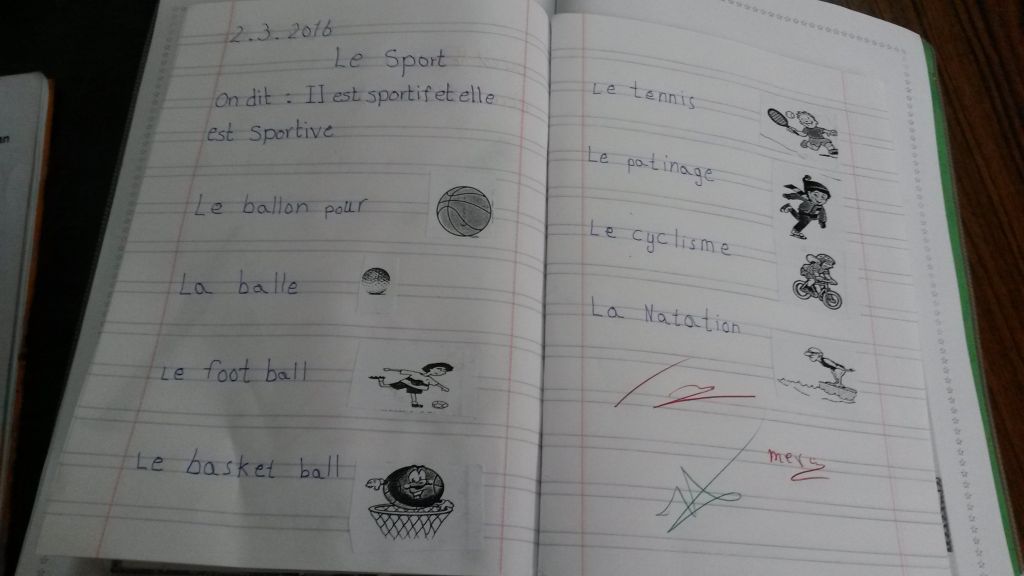 2.3.2016
Le Sport
On dit : Il est sportif et elle
est sportive
Le ballon pour
La balle
Le foot ball
Le basket ball
Le tennis
Le patinage
Le cyclisme
La Natation